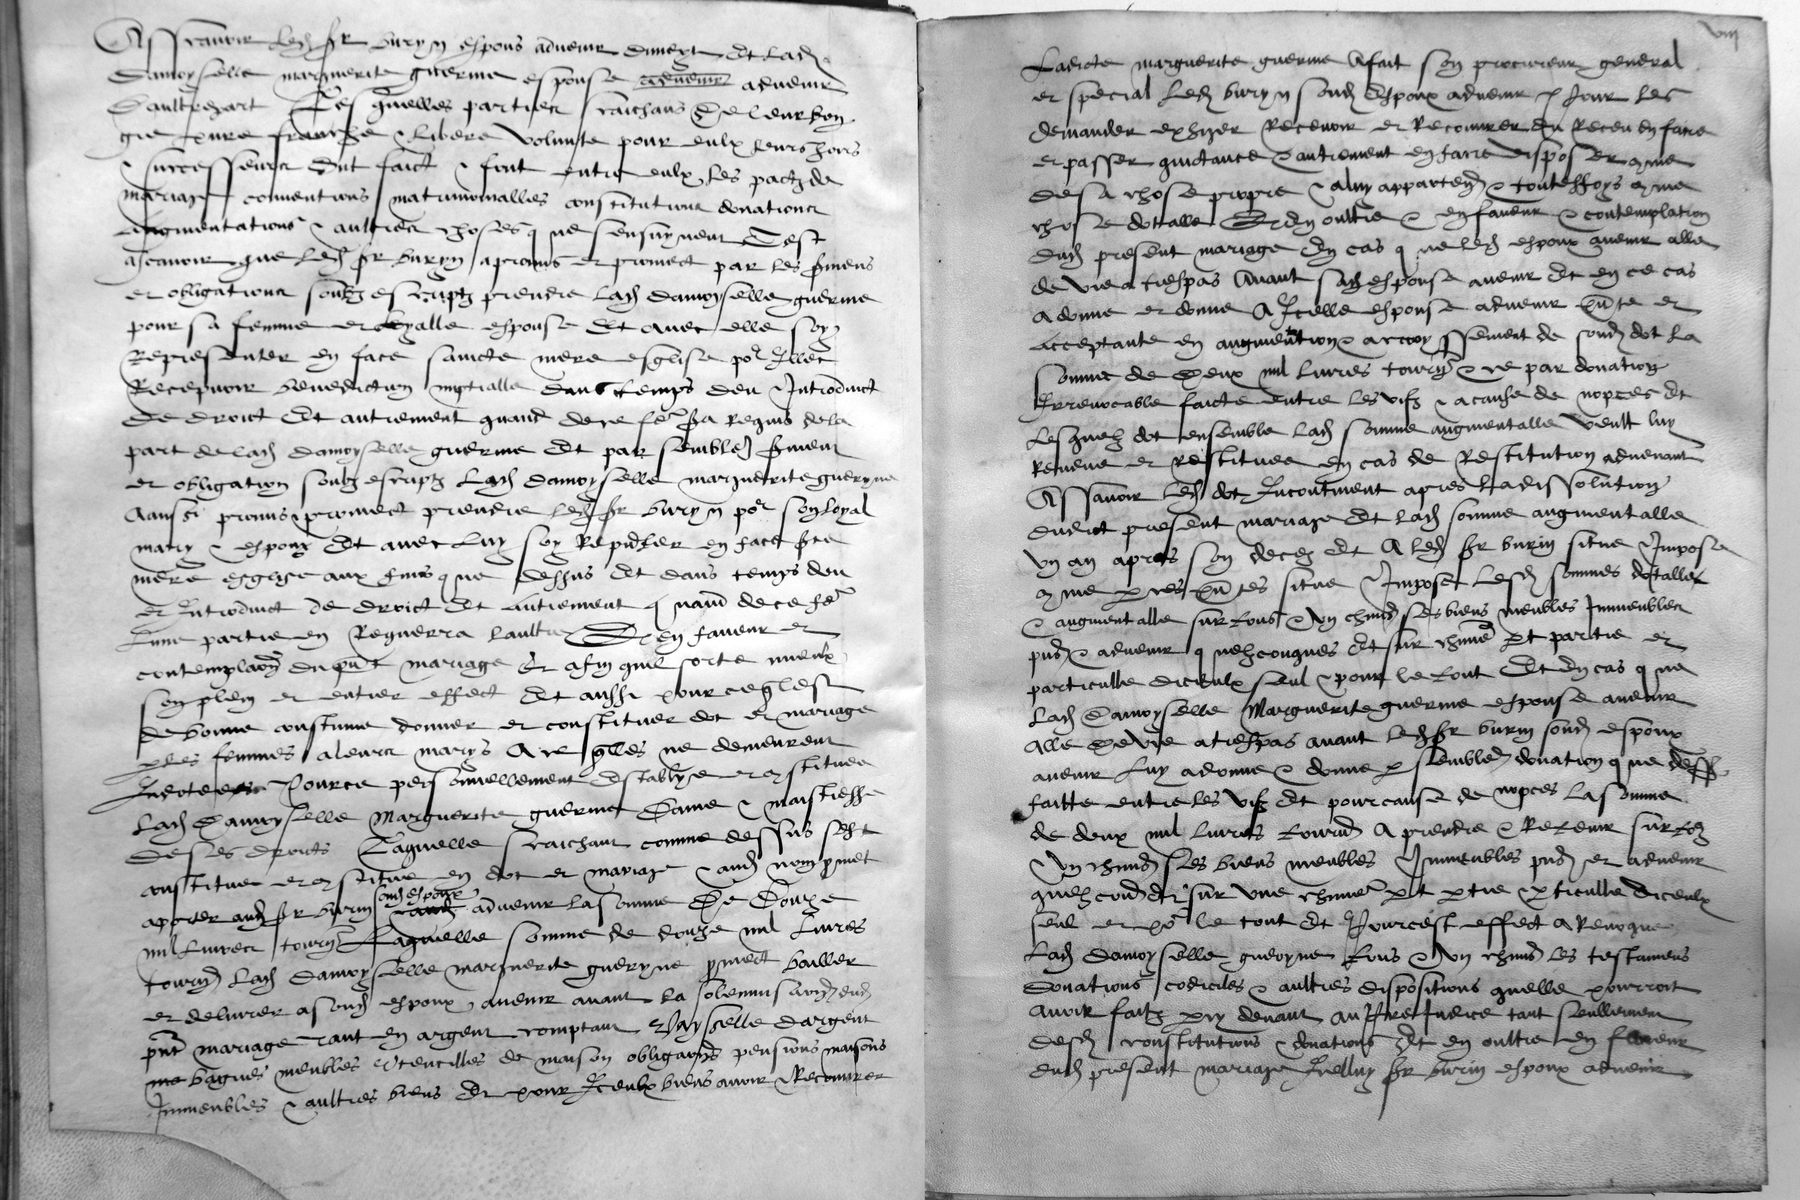 Assavoir led sr buryn espous advenir dune part et lad
damoyselle marguerite guerine espouse advenir
daultre part Lesquelles parties saichans de leur bon
gre pure franche & libere volunte pour eulx leurs hoirs
& successeurs ont faict & font entre eulx les pactz de
mariage conventions matrimonialles constitutions donations
augmentations & aultres choses que sensuyvent Cest
ascavoir que led sr buryn a promis et promect par les sermens
et obligations soubz escriptz prendre lad damoyselle guerine
pour sa femme et loyalle espouse et avec elle soy
representer en face saincte mere esglise por illec
recepvoir benediction nuptialle dans temps deu & introduict
de droict et autrement quand de ce fere sera requis de la
part de lad damoyselle guerine et par sembled serment
et obligation soubz escriptz lad damoyselle marguerite gueryne
a aussi promis & promect prendre led sr buryn por son loyal
mary & espoux et avec luy soy repnter en face ste
mere esglise aux fins que dessus et dans temps deu
et introduict de droict et autrement quand de ce fere
lune partie en requerra laultre Et en faveur et
contemplaon du pnt mariage et afin quil sorte mieulx
son plein et entier effect et aussi pour ce quil est
de bonne coustume donner et constituer dot et mariage
les femmes a leurs marys a ce quelles ne demeurent
indotees Pour ce personnellement establye et constituee
lad damoyselle Marguerite guerine dame & maistresse
de ses droits Laquelle saichant comme dessus sest
constituee et constitue en dot et mariage & aud nom promet
aporter aud sr burin soud espoux advenir la somme de douze
mil livres tourn Laquelle somme de douze mil livres
tourn lad damoyselle marguerite gueryne promect bailler
et delivrer a soud espoux avenir avant la solemnisaon dud
pnt mariage tant en argent comptant vayselle dargent
bagues meubles utencilles de maison obligaons pensions maisons
immeubles & aultres biens et pour iceulx biens avoir & recouvrer
viii
Ladicte marguerite guerine a fait son procureur general
et special led buryn soud espoux advenir pour les
demander exhiger recevoir et recouvrer du receu en faire
et passer quictance & autrement en faire disposer comme
de sa chose propre & a luy apparten & touteffoys comme
chose dottalle Et en oultre & en faveur & contemplation
dud present mariage en cas que led espoux avenir alle
de vie a trespas avant sad espouse avenir et en ce cas
a donne et donne a icelle espouse advenir pnte et
acceptante en augmention & accroyssement de soud dot la
somme de deux mil livres tourn & ce par donation
irrevocable faicte entre les vifz & a cause de nopces et
lesquelz dot ensemble lad somme augmentalle veult luy
rendue et restituee en cas de restitution advenant
Assavoir led dot incontinent apres la dissolution
dudict present mariage et lad somme augmentalle
un an apres son decez et a led sr burin situe & impose
comme par ces pntes situe & impose lesd sommes dotalle
& augmentalle sur tous & un chund ses biens meubles immeubles
pnds & advenir quelzconques et sur chune part partie et
particulle diceulx seul & pour le tout Et en cas que
lad damoyselle Marguerite guerine espouse avenir
alle de vie a trespas avant led sr burin soud espoux
avenir luy a donne & donne par sembled donation que dess
faitte entre les vifz et pour cause de nopces la somme
de deux mil livres tourn a prendre & retenir sur tous
& un chund ses biens meubles immeubles pnds et advenir
quelzcond et sur une chune part partie & particulle diceulx
seul et por le tout et pour cest effect a revoque
lad damoyselle gueryne tous & un chund les testamens
donations codiciles & aultres dispositions quelle pourroit
avoir faitz par cy devant au prejudice tant seullement
desd constitutions & donations Et en oultre en faveur
dud present mariage icelluy sr burin espoux advenir